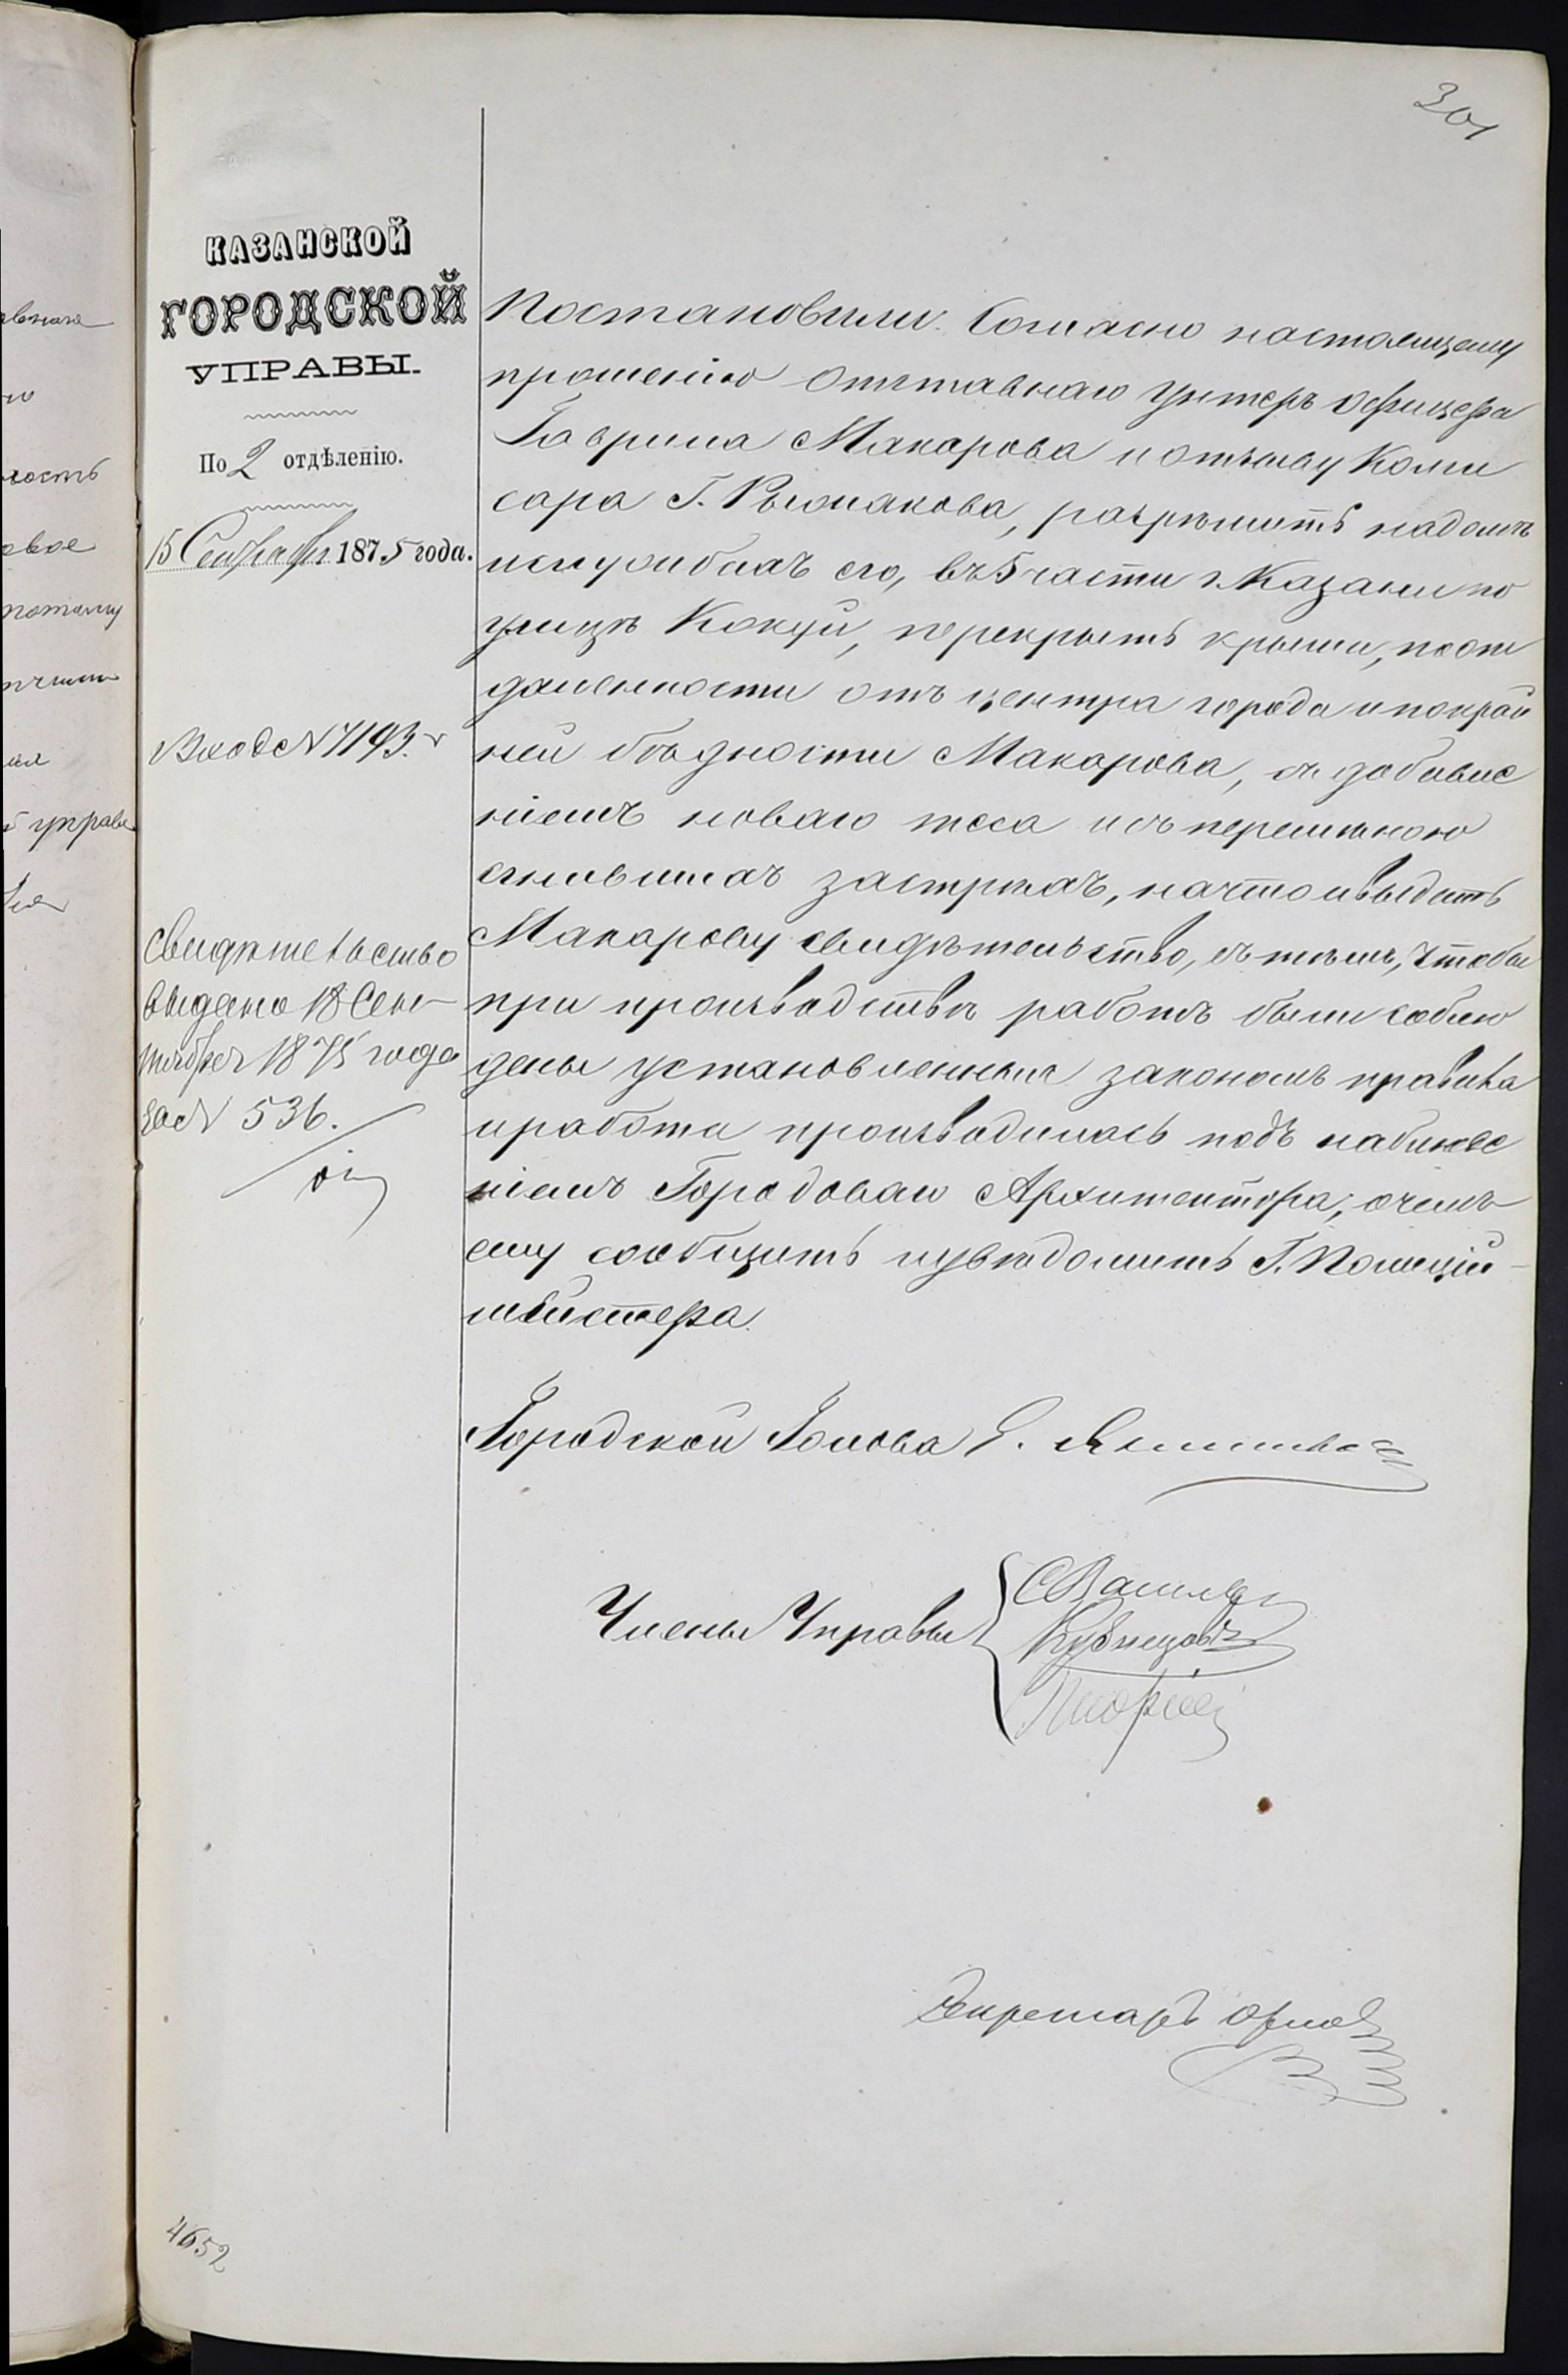 301
КАЗАНСКОЙ
ГОРОДСКОЙ
УПРАВЫ.
По 2 отдѣленію.
15 Сентября 1875 года.
Входс № 7193.
Свидѣтельство
выдано 18 Сен-
тября 1875 года
за № 536.
Постановили: Согласно настоящему
прошенію отставнаго унтеръ офицера
Гаврила Макарова и отзыву Коми
сара Г. Рыбнакова, разрѣшить надомѣ
ислужбахъ его, въ 5 части г. Казани по
улицѣ Кокуй, перекрыть крыши, поот
даленности отъ центра города ипокрай
ней бѣдности Макарова, съ добавле
ніемъ новаго теса исъ перемѣною
сгнившихъ застрѣхъ, начто ивыдать
Макарову свидѣтельство, съ тѣмъ, чтобы
при производствѣ работъ были соблю
дены установленныя закономъ правила
иработа производилась подъ наблюде
ніемъ Городоваго Архитектора; очемъ
ему сообщить иувѣдомить Г. Полиций-
мейстера.
Городской Голова
Члены Управы
Кузнецовъ
Секретарь Орлов
4652
овое
потому
управ